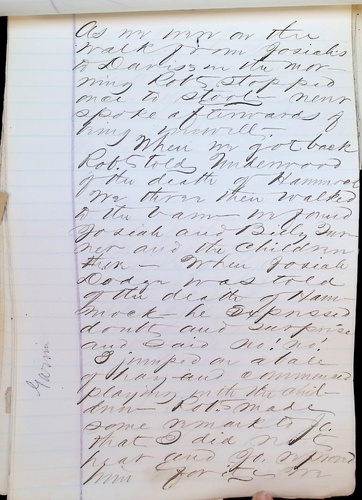 As we were on the
walk from Josiah's
to Davis's in the mor-
ning Rob. stopped
once to stool never
spoke afterwards of
being unwell.
When we got back
Rob. told Underwood
of the death of Hammock
We three then walked
to the barn - we found
Josiah and Billy Tur-
ner and the children
there - When Josiah
Dodge was told
of the death of Ham-
mock - he expressed
doubt and surprise
and said no! no!
I jumped on a bale
of hay and commenced
playing with the chil-
dren - Rob. made
some remark to
that I did not
hear and
him for